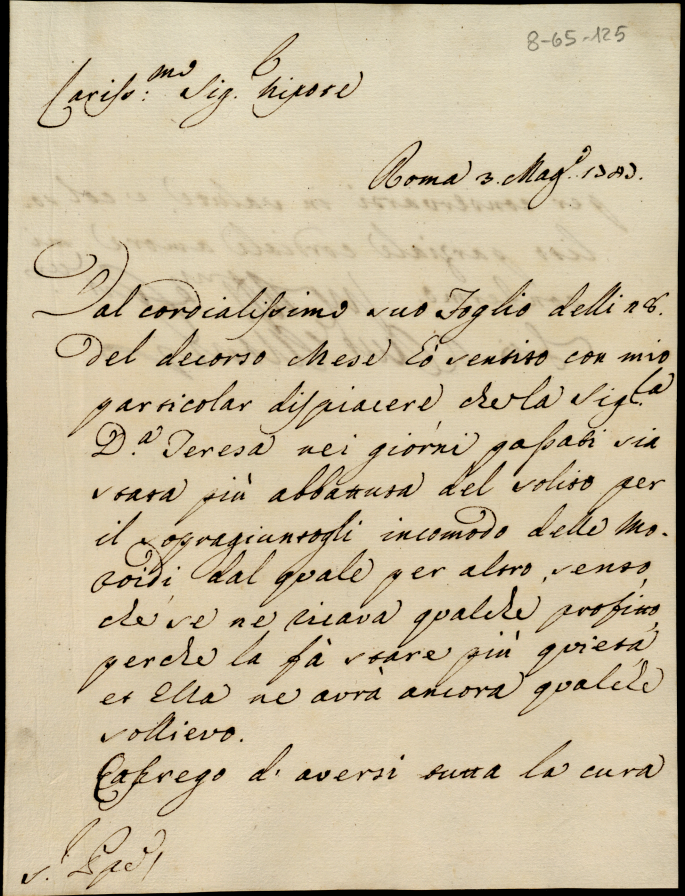 8-65-125
Cariss:mo Sig.r Nipote
Roma 3. Mag.o 1783.
Dal cordialissimo suo Foglio delli 28.
del decorso Mese hò sentito con mio
particolar dispiacere che la Sig.ra
D.a Teresa nei giorni passati sia
stata più abbattuta del solito per
il sopragiuntogli incomodo delle Mo-
roidi, dal quale per altro, sento,
che se ne ricava qualche profitto,
perche la fà stare più quieta,
et Ella ne avrà ancora qualche
sollievo.
La prego d'aversi tutta la cura
S.r